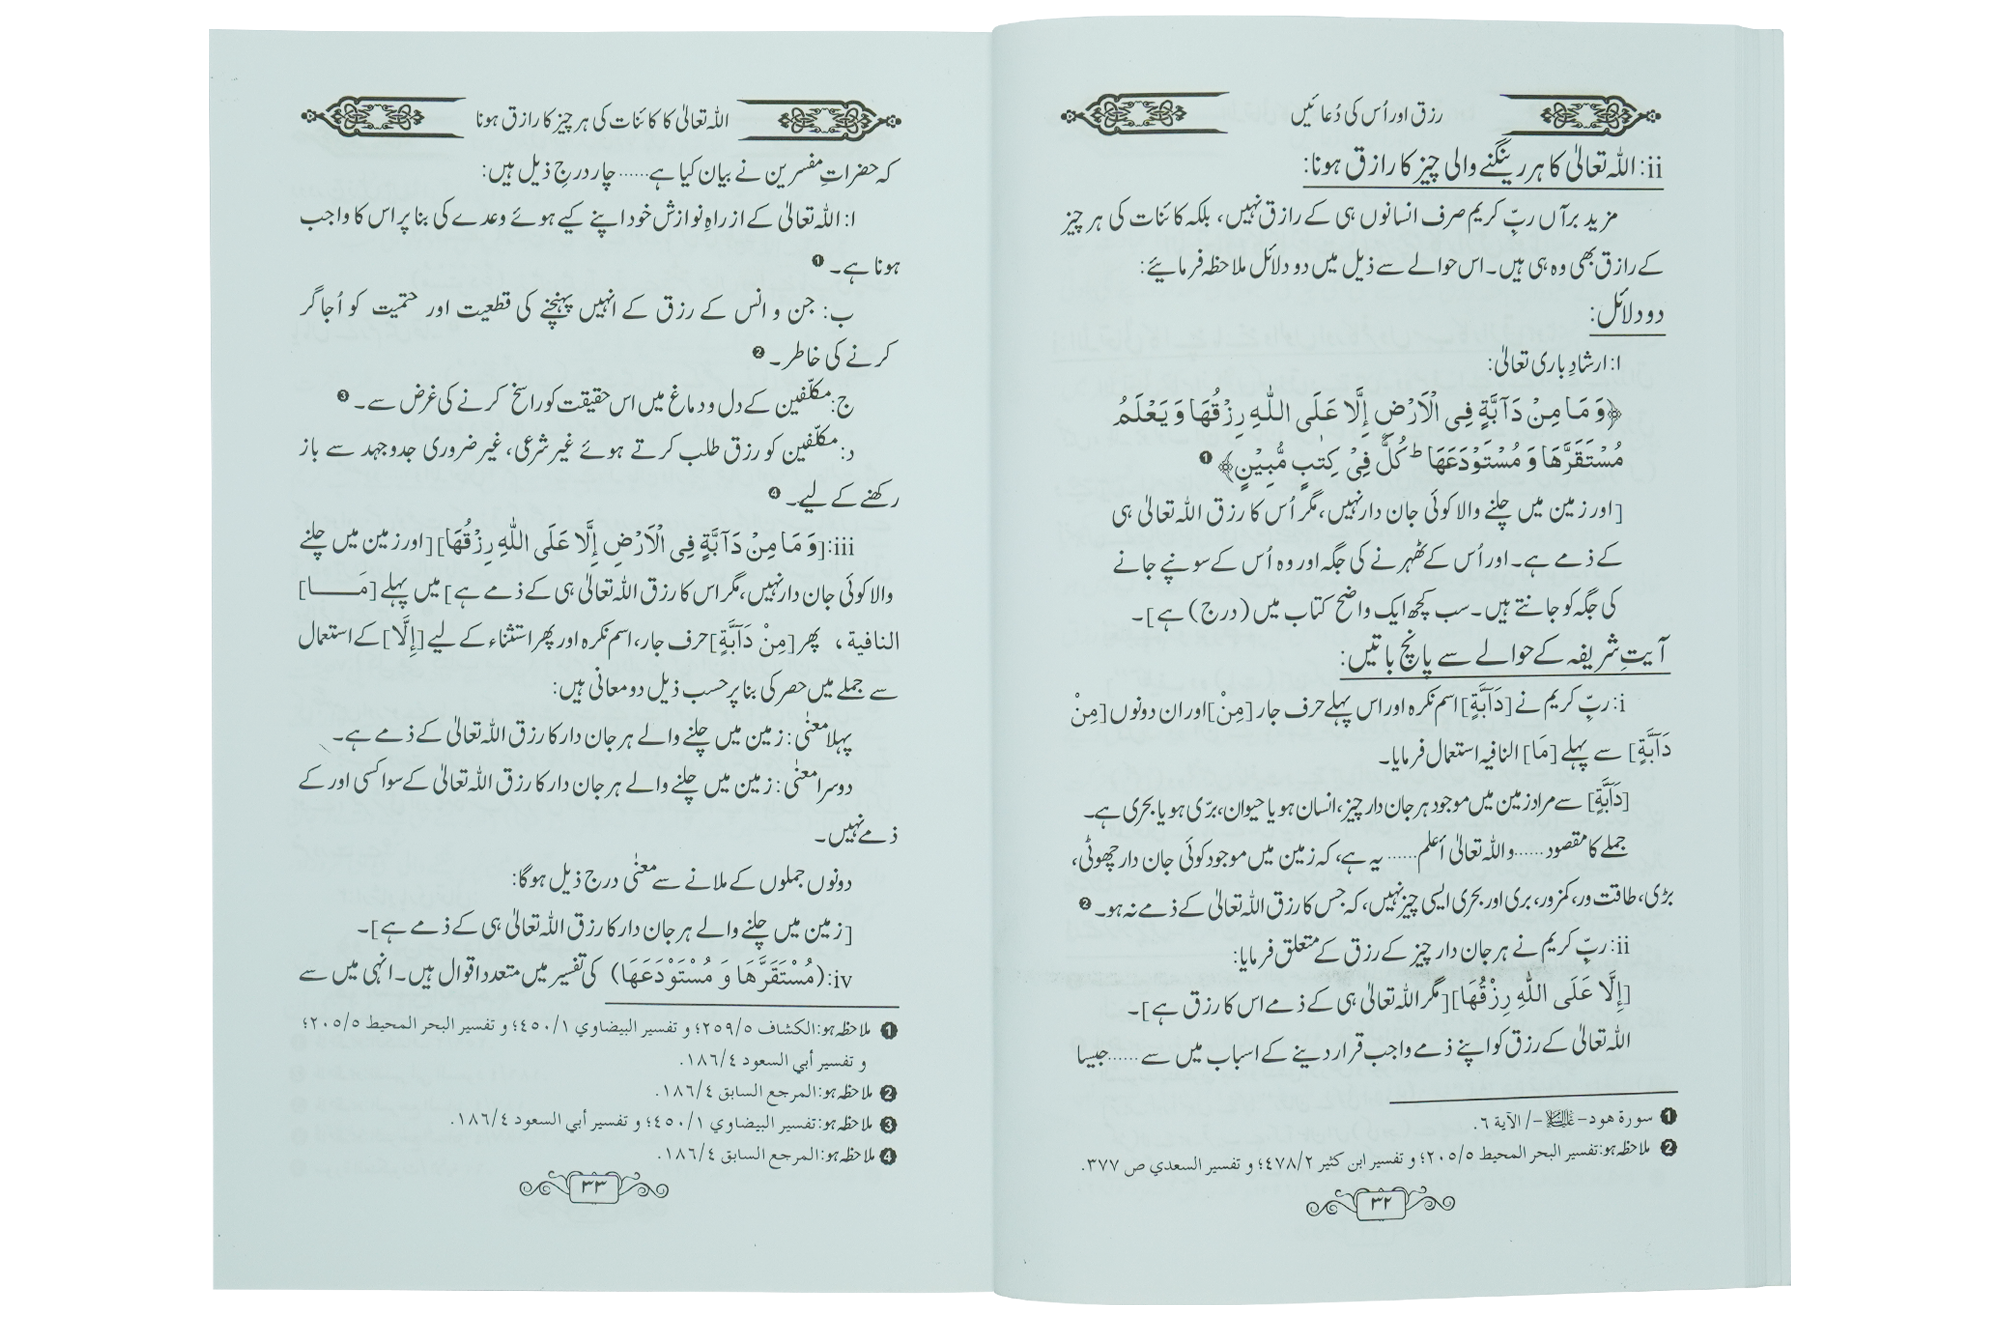 رزق اور اُس کی دُعائیں
ii: اللہ تعالیٰ کا ہر رینگنے والی چیز کا رازق ہونا:
مزید برآں ربِّ کریم صرف انسانوں ہی کے رازق نہیں، بلکہ کائنات کی ہر چیز
کے رازق بھی وہ ہی ہیں۔ اس حوالے سے ذیل میں دو دلائل ملاحظہ فرمائیے:
دو دلائل:
ا: ارشادِ باری تعالیٰ:
﴿وَ مَا مِنْ دَآبَّةٍ فِی الْاَرْضِ إِلَّا عَلَی اللّٰهِ رِزْقُهَا وَ یَعْلَمُ
مُسْتَقَرَّهَا وَ مُسْتَوْدَعَهَا ؕ كُلٌّ فِیْ كِتٰبٍ مُّبِیْنٍ﴾ ❶
[اور زمین میں چلنے والا کوئی جان دار نہیں، مگر اُس کا رزق اللہ تعالیٰ ہی
کے ذمے ہے۔ اور اُس کے ٹھہرنے کی جگہ اور وہ اُس کے سونپے جانے
کی جگہ کو جانتے ہیں۔ سب کچھ ایک واضح کتاب میں (درج) ہے]۔
آیتِ شریفہ کے حوالے سے پانچ باتیں:
i: ربِّ کریم نے [دَآبَّةٍ] اسم نکرہ اور اس پہلے حرف جار [مِنْ] اور ان دونوں [مِنْ
دَآبَّةٍ] سے پہلے [مَا] النافیہ استعمال فرمایا۔
[دَآبَّةٍ] سے مراد زمین میں موجود ہر جان دار چیز، انسان ہو یا حیوان، برّی ہو یا بحری ہے۔
جملے کا مقصود ...... واللہ تعالیٰ أعلم ...... یہ ہے، کہ زمین میں موجود کوئی جان دار چھوٹی،
بڑی، طاقت ور، کمزور، بری اور بحری ایسی چیز نہیں، کہ جس کا رزق اللہ تعالیٰ کے ذمے نہ ہو۔ ❷
ii: ربِّ کریم نے ہر جان دار چیز کے رزق کے متعلق فرمایا:
[إِلَّا عَلَی اللّٰهِ رِزْقُهَا] [مگر اللہ تعالیٰ ہی کے ذمے اس کا رزق ہے]۔
اللہ تعالیٰ کے رزق کو اپنے ذمے واجب قرار دینے کے اسباب میں سے ...... جیسا
❶ سورة هود- علیہ السلام -/ الآية ٦.
❷ ملاحظہ ہو: تفسير البحر المحيط ٢٠٥/٥؛ و تفسير ابن كثير ٤٧٨/٢؛ و تفسير السعدي ص ٣٧٧.
٣٢
اللہ تعالیٰ کا کائنات کی ہر چیز کا رازق ہونا
کہ حضراتِ مفسرین نے بیان کیا ہے ...... چار درجِ ذیل ہیں:
ا: اللہ تعالیٰ کے از راہِ نوازش خود اپنے کیے ہوئے وعدے کی بنا پر اس کا واجب
ہونا ہے۔ ❶
ب: جن و انس کے رزق کے انہیں پہنچنے کی قطعیت اور حتمیت کو اُجاگر
کرنے کی خاطر۔ ❷
ج: مکلّفین کے دل و دماغ میں اس حقیقت کو راسخ کرنے کی غرض سے۔ ❸
د: مکلّفین کو رزق طلب کرتے ہوئے غیر شرعی، غیر ضروری جدوجہد سے باز
رکھنے کے لیے۔ ❹
iii: [وَ مَا مِنْ دَآبَّةٍ فِی الْاَرْضِ إِلَّا عَلَی اللّٰهِ رِزْقُهَا] [اور زمین میں چلنے
والا کوئی جان دار نہیں، مگر اس کا رزق اللہ تعالیٰ ہی کے ذمے ہے] میں پہلے [مَـــا]
النافية، پھر [مِنْ دَآبَّةٍ] حرف جار، اسم نکرہ اور پھر استثناء کے لیے [إِلَّا] کے استعمال
سے جملے میں حصر کی بنا پر حسب ذیل دو معانی ہیں:
پہلا معنٰی: زمین میں چلنے والے ہر جان دار کا رزق اللہ تعالیٰ کے ذمے ہے۔
دوسرا معنٰی: زمین میں چلنے والے ہر جان دار کا رزق اللہ تعالیٰ کے سوا کسی اور کے
ذمے نہیں۔
دونوں جملوں کے ملانے سے معنٰی درج ذیل ہوگا:
[زمین میں چلنے والے ہر جان دار کا رزق اللہ تعالیٰ ہی کے ذمے ہے]۔
iv: (مُسْتَقَرَّهَا وَ مُسْتَوْدَعَهَا) کی تفسیر میں متعدد اقوال ہیں۔ انہی میں سے
❶ ملاحظہ ہو: الكشاف ٢٥٩/٥؛ و تفسير البيضاوي ٤٥٠/١؛ و تفسير البحر المحيط ٢٠٥/٥؛
و تفسير أبي السعود ١٨٦/٤.
❷ ملاحظہ ہو: المرجع السابق ١٨٦/٤.
❸ ملاحظہ ہو: تفسير البيضاوي ٤٥٠/١؛ و تفسير أبي السعود ١٨٦/٤.
❹ ملاحظہ ہو: المرجع السابق ١٨٦/٤.
٣٣